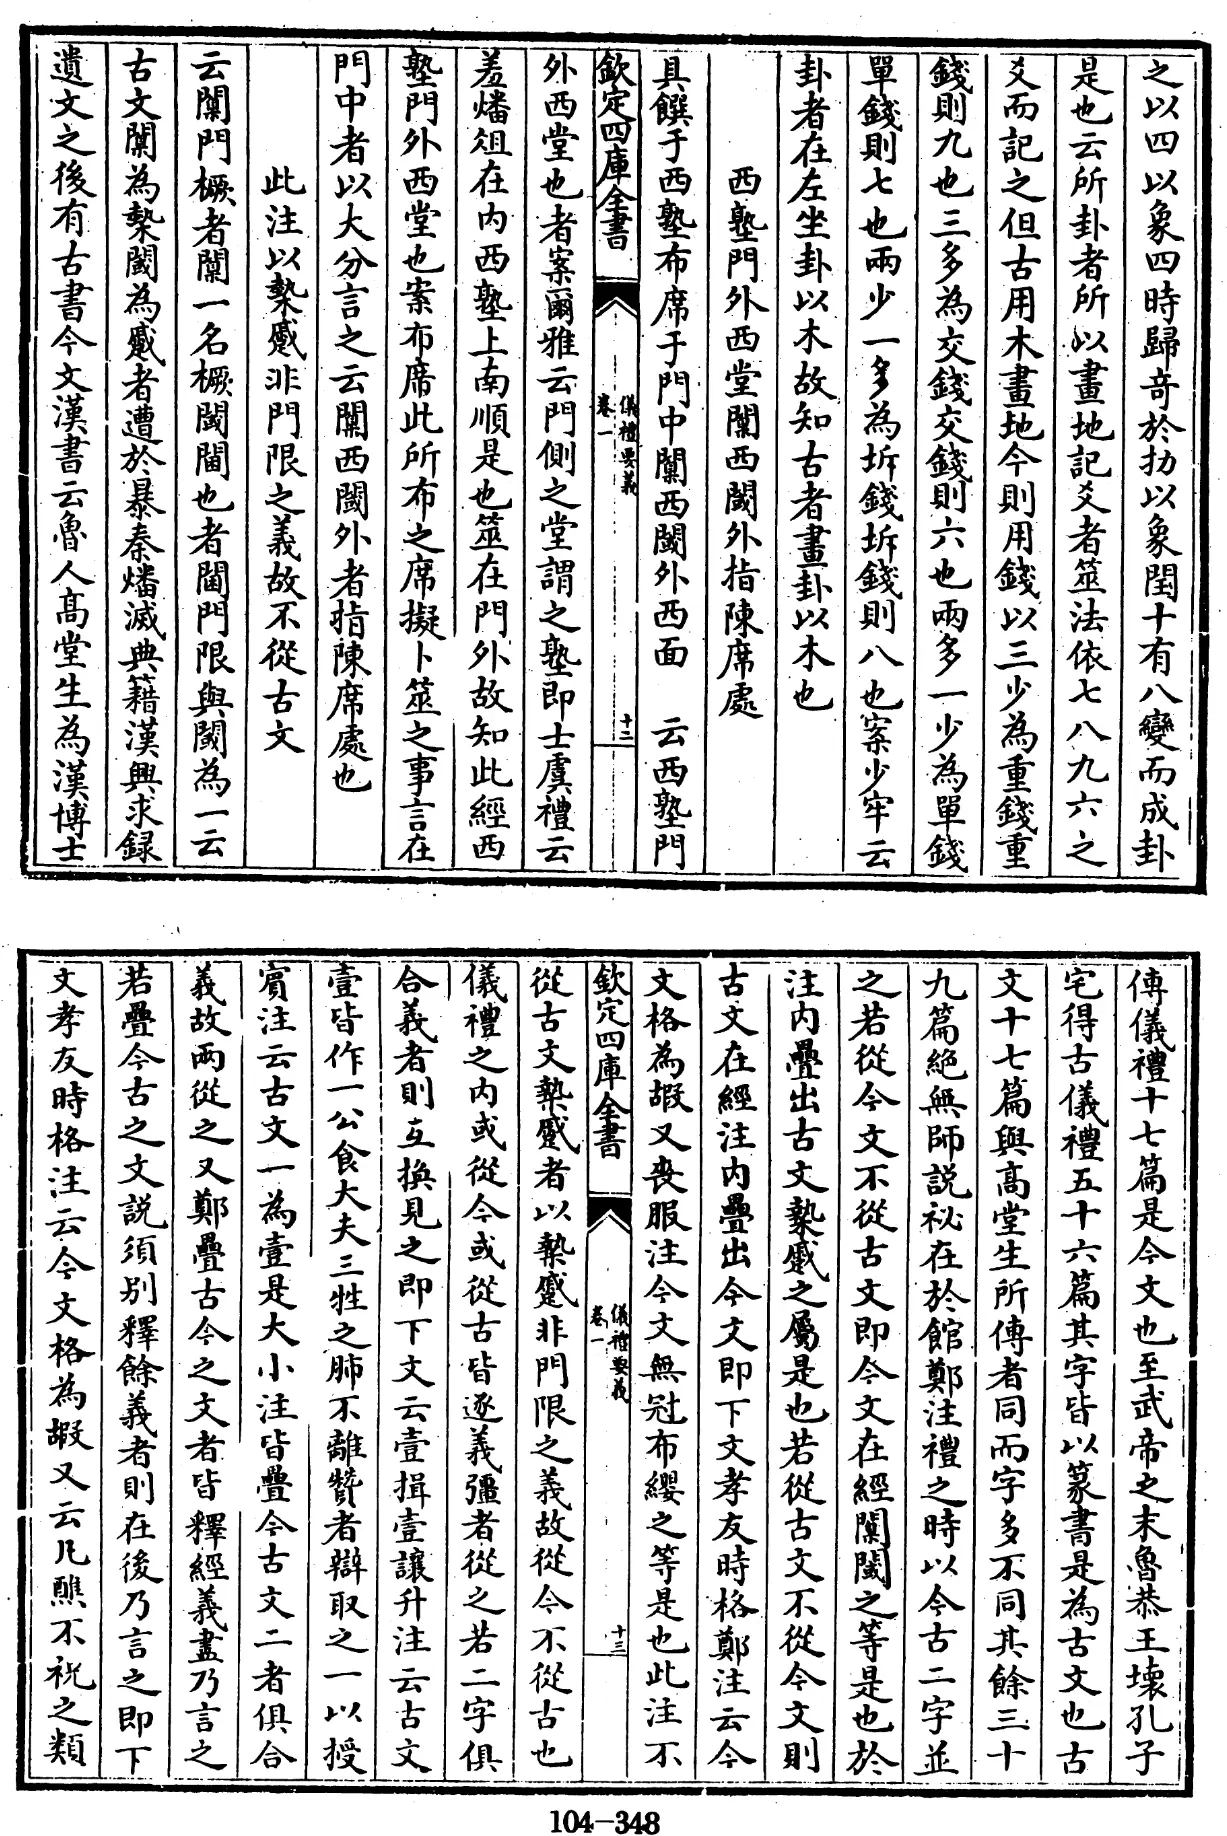 之以四以象四時歸奇於扐以象閏十有八變而成卦
是也云所卦者所以畫地記爻者筮法依七八九六之
爻而記之但古用木畫地今則用錢以三少為重錢重
錢則九也三多為交錢交錢則六也兩多一少為單錢
單錢則七也兩少一多為坼錢坼錢則八也案少牢云
卦者在左坐卦以木故知古者畫卦以木也
西塾門外西堂闑西閾外指陳席處
具饌于西塾布席于門中闑西閾外西面　云西塾門
欽定四庫全書
儀禮要義
卷一
十二
外西堂也者案爾雅云門側之堂謂之塾即士虞禮云
羞燔俎在内西塾上南順是也筮在門外故知此經西
塾門外西堂也案布席此所布之席擬卜筮之事言在
門中者以大分言之云闑西閾外者指陳席處也
此注以槷蹙非門限之義故不從古文
云闑門橛者闑一名橛閾閫也者閫門限與閾為一云
古文闑為槷閾為蹙者遭於暴秦燔滅典籍漢興求録
遺文之後有古書今文漢書云魯人高堂生為漢博士
傳儀禮十七篇是今文也至武帝之末魯恭王壊孔子
宅得古儀禮五十六篇其字皆以篆書是為古文也古
文十七篇與高堂生所傳者同而字多不同其餘三十
九篇絶無師説祕在於館鄭注禮之時以今古二字並
之若從今文不從古文即今文在經闑閾之等是也於
注内疊出古文槷蹙之屬是也若從古文不從今文則
古文在經注内疊出今文即下文孝友時格鄭注云今
文格為嘏又喪服注今文無冠布纓之等是也此注不
欽定四庫全書
儀禮要義
卷一
十三
從古文槷蹙者以槷蹙非門限之義故從今不從古也
儀禮之内或從今或從古皆逐義彊者從之若二字俱
合義者則互換見之即下文云壹揖壹讓升注云古文
壹皆作一公食大夫三牲之肺不離贊者辯取之一以授
賓注云古文一為壹是大小注皆疊今古文二者俱合
義故兩從之又鄭疊古今之文者皆釋經義盡乃言之
若疊今古之文説須别釋餘義者則在後乃言之即下
文孝友時格注云今文格為嘏又云凡醮不祝之類
104-348